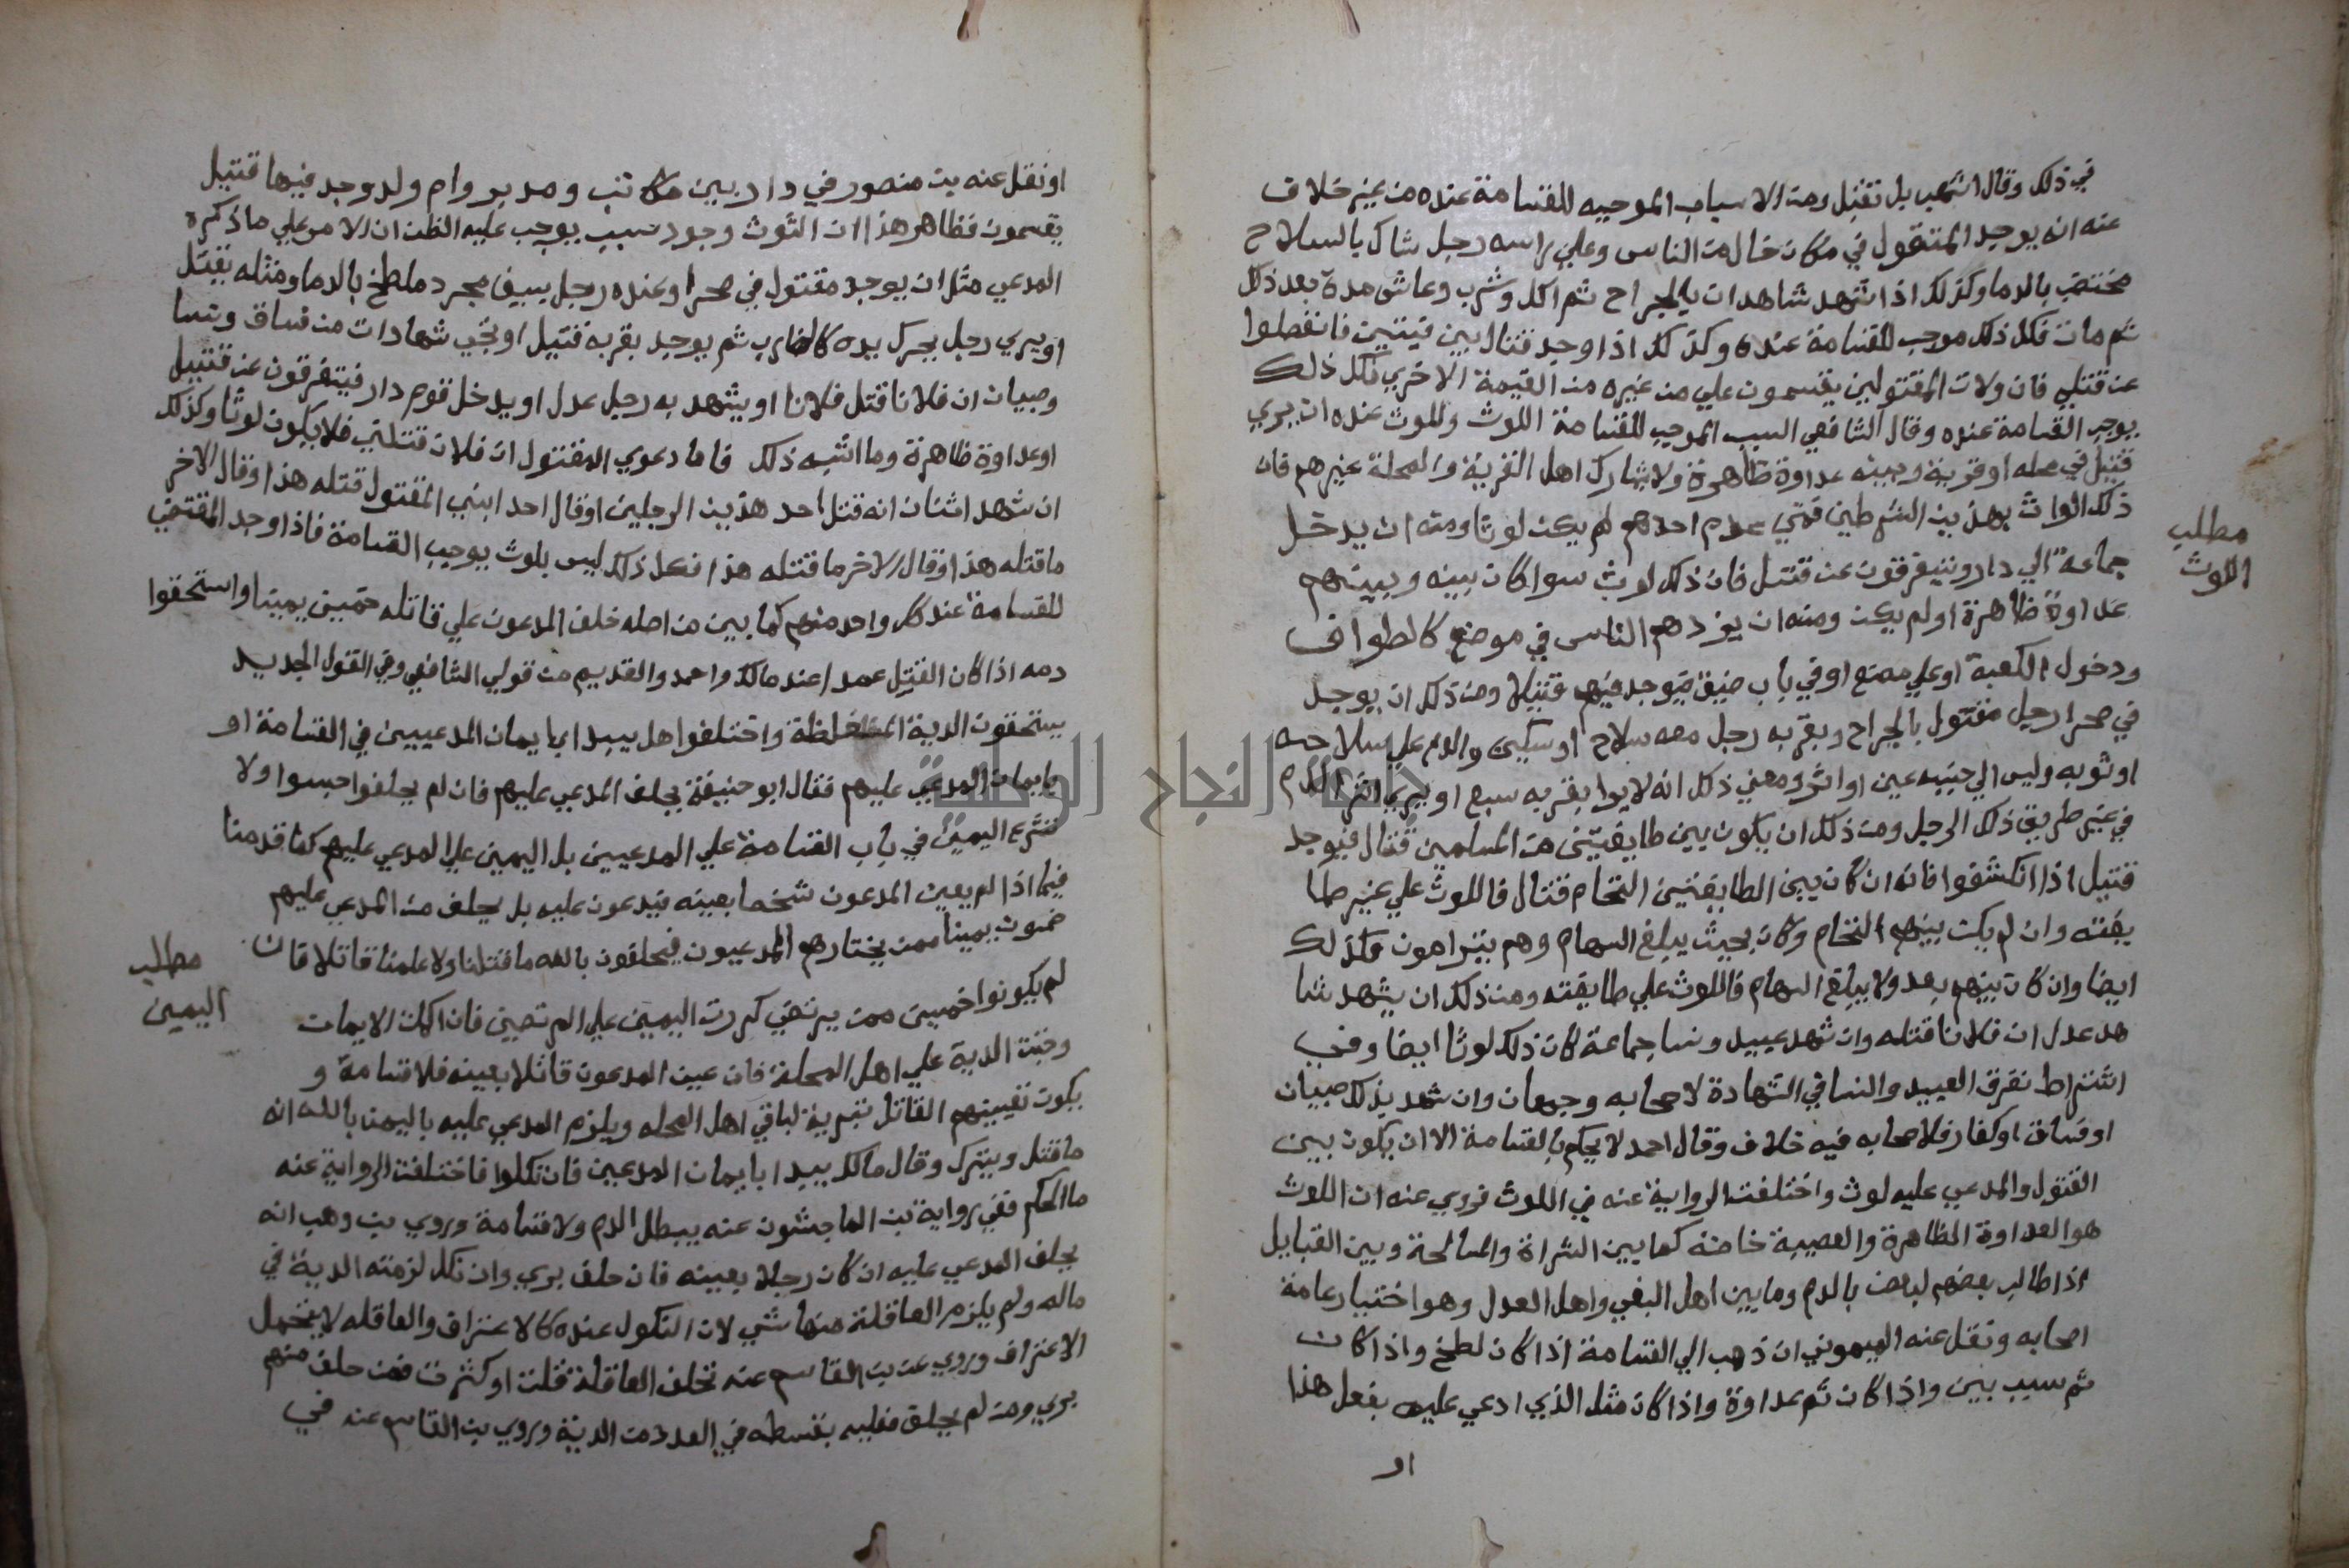 في ذلك وقال اشهب بل تقتل ومن الاسباب الموجبه للقسامة عنده من غير خلاف
عنه انه يوجد المقتول في مكان خال من الناس وعلي راسه رجل شاك بالسلاح
مختضب بالدما وكذلك اذا شهد شاهدان بالجراح ثم اكل وشرب وعاش مدة بعد ذلك
ثم مات فكل ذلك موجب للقسامة عنده وكذلك اذا وجد قتال بين فيتين فانفصلوا
عن قتلي فان ولات المقتولين يقسمون علي من غيره من القيمة الاخري فكل ذلك
يوجب القسامة عنده وقال الشافعي السبب الموجب للقسامة اللوث واللوث عنده ان يري
قتيل في محله او قرية وبينه عداوة ظاهرة ولا يشارك اهل القرية والمحلة غيرهم فان
ذلك الواث بهذين الشرطين فمتي عدم احدهم لم يكن لوثا ومنه ان يدخل
جماعة الي دار وتتيفرقون عن قتيل فان ذلك لوث سوا كان بينه وبينهم
عداوة ظاهرة او لم يكن ومنه ان يزدهم الناس في موضع كالطواف
ودخول الكعبة او علي مصنع او في باب ضيق فيوجد فيهم قتيلا ومن ذلك ان يوجد
في صحرا رجل مقتول بالجراح وبقربه رجل معه سلاح او سكين والدم علي سلاحه
او ثوبه وليس الي جنبيه عين او اثر ومعني ذلك انه لا يوا بقربه سبع او يري اثر الدم
في غير طريق ذلك الرجل ومن ذلك ان يكون بين طايفتين من المسلمين قتال فيوجد
قتيل اذا انكشفوا فانه ان كان بين الطايفتين التحام قتال فاللوث علي غير طا
يفته وان لم يكن بينهم التحام وكان بحيث يبلغ السهام وهم يترامون فكذلك
ايضا وان كان بينهم بعد ولا يبلغ السهام فاللوث علي طايفته ومن ذلك ان يشهد شا
هد عدل ان فلانا قتله وان شهد عبيد ونسا جماعة كان ذلك لوثا ايضا وفي
اشتراط تفرق العبيد والنسا في الشهادة لاصحابه وجهان وان شهد بذلك صبيان
او فساق او كفار فلاصحابه فيه خلاف وقال احمد لا يحكم بالقسامة الا ان يكون بين
القتول والمدعي عليه لوث واختلفت الرواية عنه في اللوث فروي عنه ان اللوث
هو العداوة الظاهرة والعصبية خاصة كما بين الشراة والمسالحة وبين القبايل
اذا طالب بعضهم لبعض بالدم وما بين اهل البغي واهل العدل وهو اختيار عامة
اصحابه ونقل عنه الميموني ان ذهب الي القسامة اذا كان لطخ واذا كان
ثم سبب بين واذا كان ثم عداوة واذا كان مثل الذي ادعي عليه يفعل هذا
او
مطلب
اللوث
او نقل عنه بن منصور في دار بين مكاتب ومدبر وام ولد وجد فيها قتيل
يقسمون فظاهر هذا ان اللوث وجود سبب يوجب عليه الظن ان الامر علي ما ذكره
المدعي مثل ان يوجد مقتول في صحرا وعنده رجل بسيف مجرد ملطخ بالدما ومثله يقتل
او يري رجل يحرك يده كالضارب ثم يوجد بقربه قتيل او تجي شهادات من فساق ونسا
وصبيان ان فلانا قتل فلانا او يشهد به رجل عدل او يدخل قوم دار فيتفرقون عن قتيل
او عداوة ظاهرة وما اشبه ذلك فاما دعوي المقتول ان فلان قتلني فلا يكون لوثا وكذلك
ان شهد اثنان انه قتل احد هذين الرجلين او قال احد ابني المقتول قتله هذا وقال الاخر
ما قتله هذا وقال الاخر ما قتله هذا فكل ذلك ليس بلوث يوجب القسامة فاذا وجد المقتضي
للقسامة عند كل واحد منهم كما بين من اصله حلف المدعون علي قاتله خمسين يمينا واستحقوا
دمه اذا كان القتيل عمدا عند مالك واحمد والقديم من قولي الشافعي وفي القول الجديد
يستحقون الدية المغلظة واختلفوا هل يبدا بايمان المدعيين في القسامة او
بايمان المدعي عليهم فقال ابو حنيفة يحلف المدعي عليهم فان لم يحلفوا حبسوا ولا
تشرع اليمين في باب القسامة علي المدعيين بل اليمين علي المدعي عليهم كما قدمنا
فيما اذا لم يعين المدعون شخصا بعينه فيدعون عليه بل يحلف من المدعي عليهم
خمسون يمينا ممن يختارهم المدعيون فيحلفون بالله ما قتلنا ولا علمنا قاتلا فان
لم يكونوا خمسين ممن يرتضي كررت اليمين علي المرتضين فان اكملت الايمان
وجبت الدية علي اهل المحلة فان عين المدعون قاتلا بعينه فلا قسامة و
يكون تعيينهم القاتل تبرية لباقي اهل المحله ويلزم المدعي عليه باليمن بالله انه
ما قتل ويترك وقال مالك يبدا بايمان المدعيين فان نكلوا فاختلفت الرواية عنه
ما الحكم ففي رواية بن الماجشون عنه يبطل الدم ولا قسامة وروي بن وهب انه
يحلف المدعي عليه ان كان رجلا بعينه فان حلف بري وان نكل لزمته الدية في
ماله ولم يلزم العاقلة منها شي لان النكول عنده كالاعتراف والعاقله لا يتحمل
الاعتراف وروي عن بن القاسم عنه تحلف العاقلة قلت او كثرت فمن حلف منهم
بري ومن لم يحلق فعليه بقسطه في العدد من الدية وروي بن القاسم عنه في
مطلب
اليمين
جامعة النجاح الوطنية